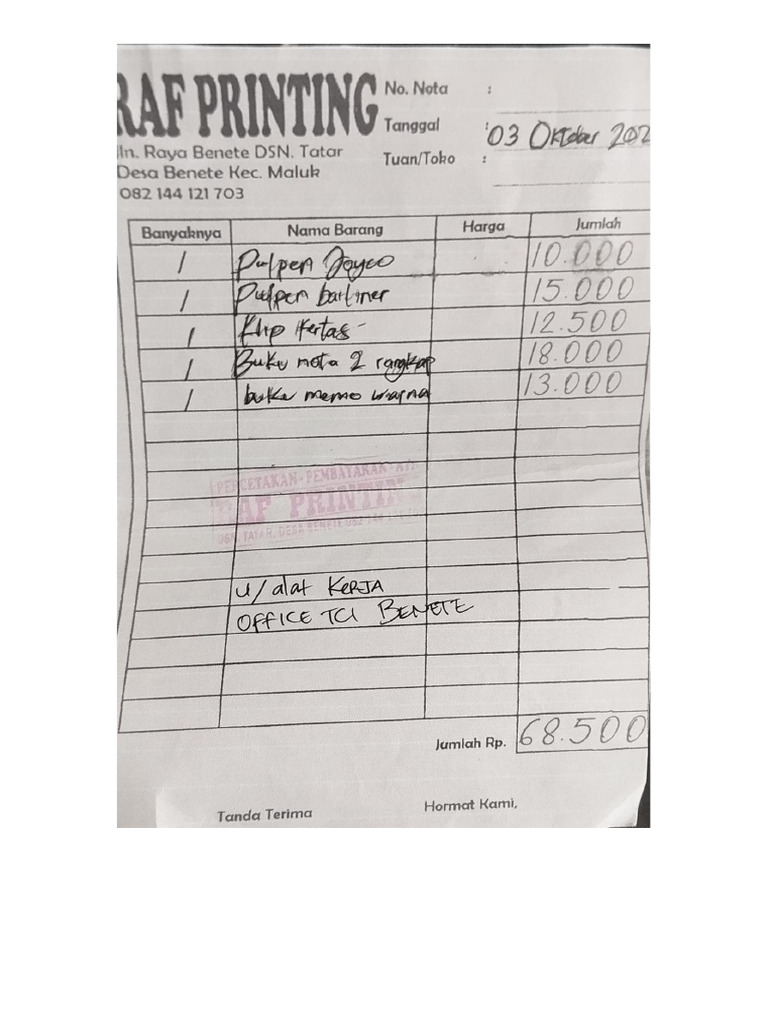 RAF PRINTING
Jln. Raya Benete DSN. Tatar
Desa Benete Kec. Maluk
082 144 121 703
No. Nota :
Tanggal : 03 Oktober 202
Tuan/Toko :
Banyaknya Nama Barang Harga Jumlah
1 Pulpen Joyco 10.000
1 Pulpen barliner 15.000
1 Klip Kertas 12.500
1 Buku nota 2 rangkap 18.000
1 buku memo warna 13.000
PERCETAKAN - PEMBAYAKAN - AT
RAF PRINTIN
DSN. TATAR, DESA BENETE 082 144 121
u/ alat KERJA
OFFICE TCI BENETE
Jumlah Rp. 68.500
Tanda Terima Hormat Kami,